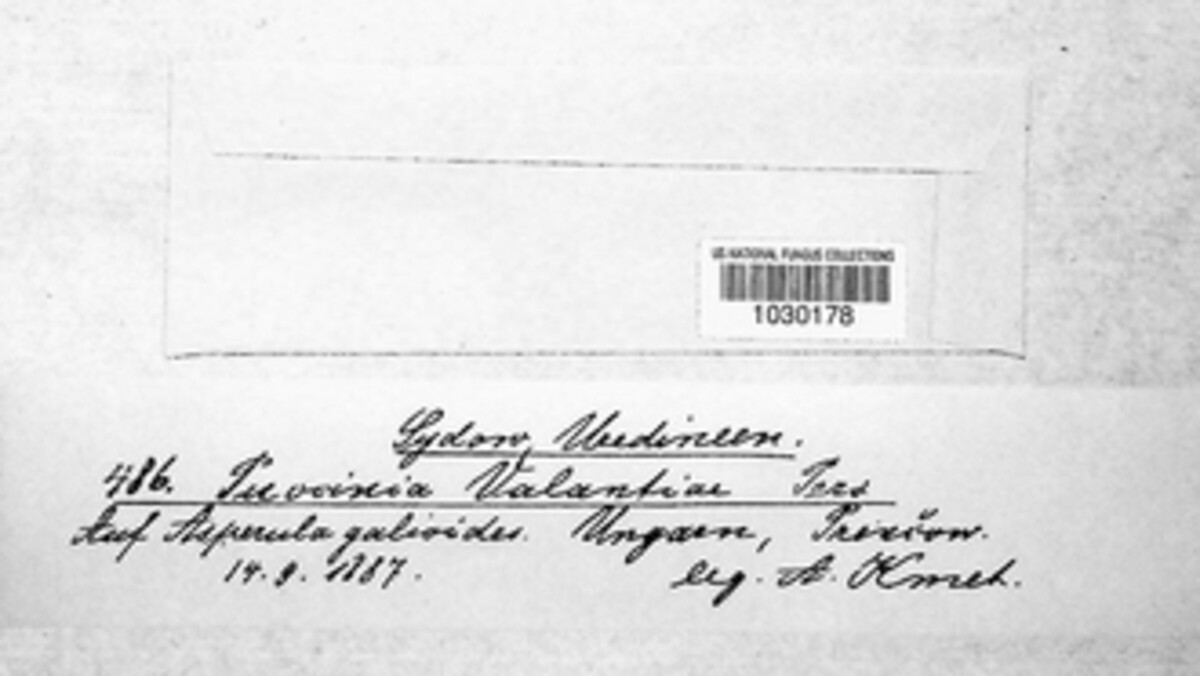 US NATIONAL FUNGUS COLLECTIONS
1030178
Sydow, Uredineen.
486. Puccinia Valantiae Pers
Auf Asperula galioides. Ungarn, Prenčow.
14. 9. 1887. leg. A. Kmet.